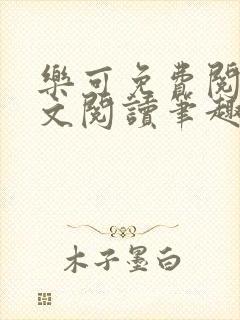 樂可免費閱
文閱讀筆趣
木子墨白